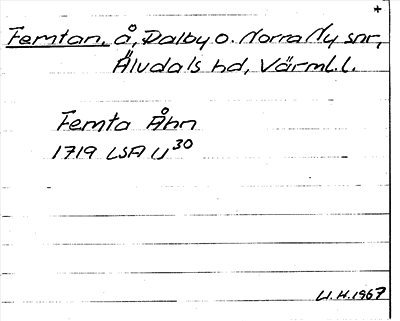 +
Femtan, å, Dalby o. Norra Ny snr,
Älvdals hd, Värml. l.
Femta Åhn
1719 LSA U30
U.H. 1967